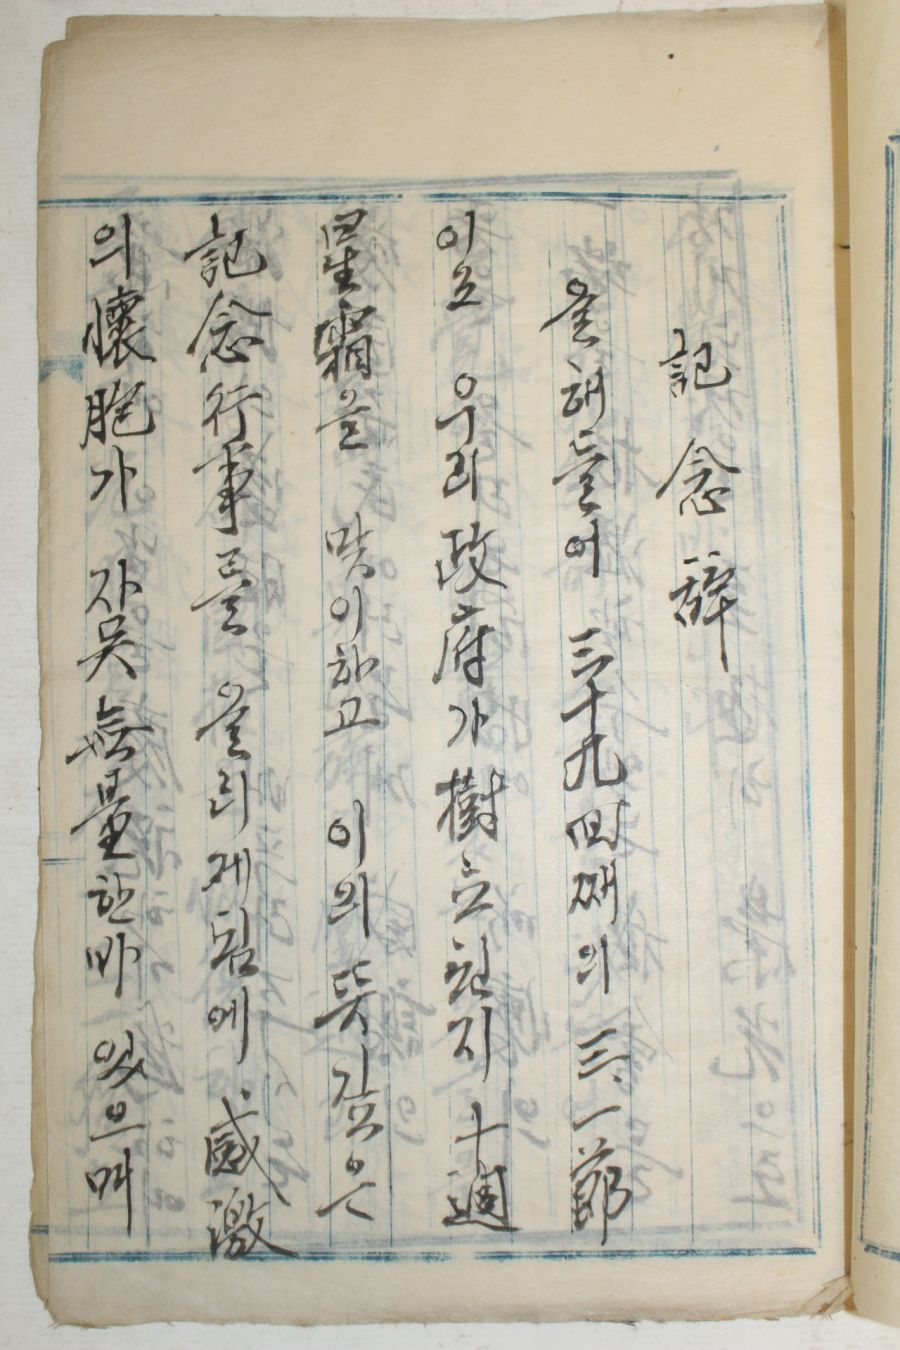 記念辭
올해들어 三十九回째의 三.一節
이오 우리 政府가 樹立된지 十週
星霜을 맞이하고 이의 뜻 깊은
記念行事를 올리게됨에 感激
의 懷胞가 자못 無量한바 있으며